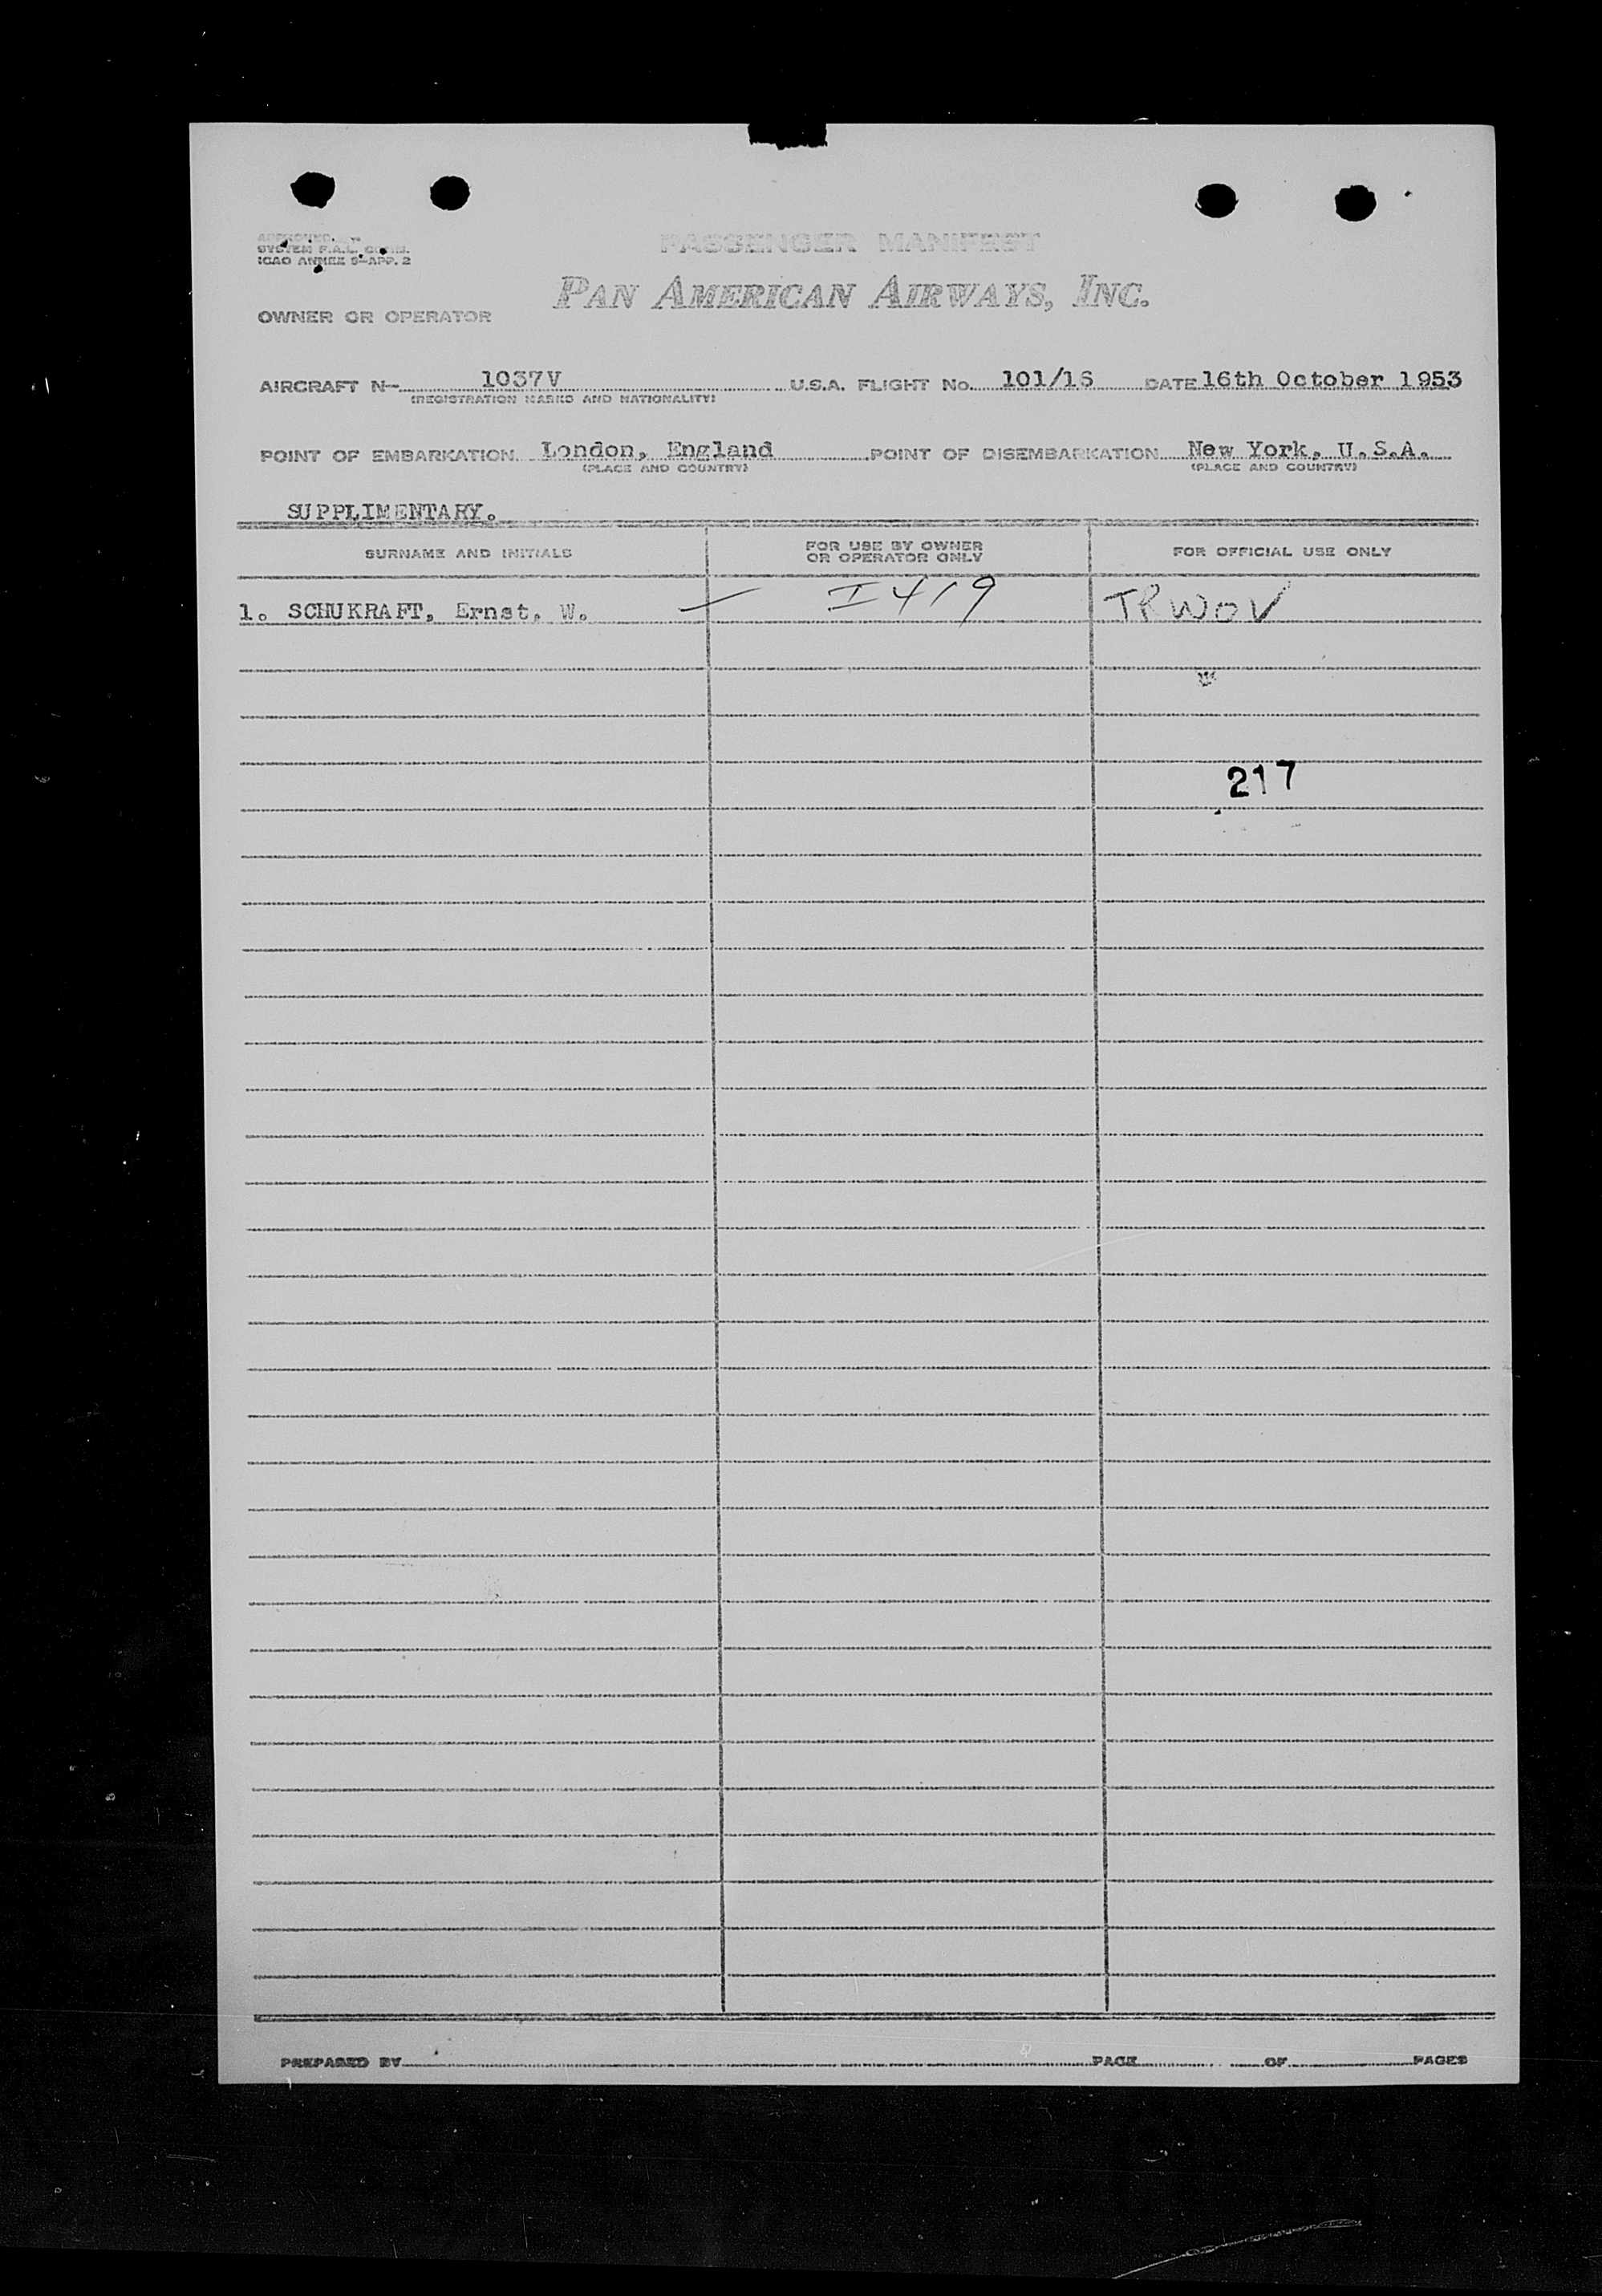 APPROVED
SYSTEM F.A.L. COMM.
ICAO ANNEX 9-APP. 2
PASSENGER MANIFEST
PAN AMERICAN AIRWAYS, INC.
OWNER OR OPERATOR
AIRCRAFT N- 1037V U.S.A. FLIGHT No. 101/16 DATE 16th October 1953
(REGISTRATION MARKS AND NATIONALITY)
POINT OF EMBARKATION London, England POINT OF DISEMBARKATION New York, U.S.A.
(PLACE AND COUNTRY) (PLACE AND COUNTRY)
SUPPLIMENTARY.
SURNAME AND INITIALS FOR USE BY OWNER OR OPERATOR ONLY FOR OFFICIAL USE ONLY
1. SCHUKRAFT, Ernst, W. I 419 TRWOV
217
PREPARED BY PAGE OF PAGES